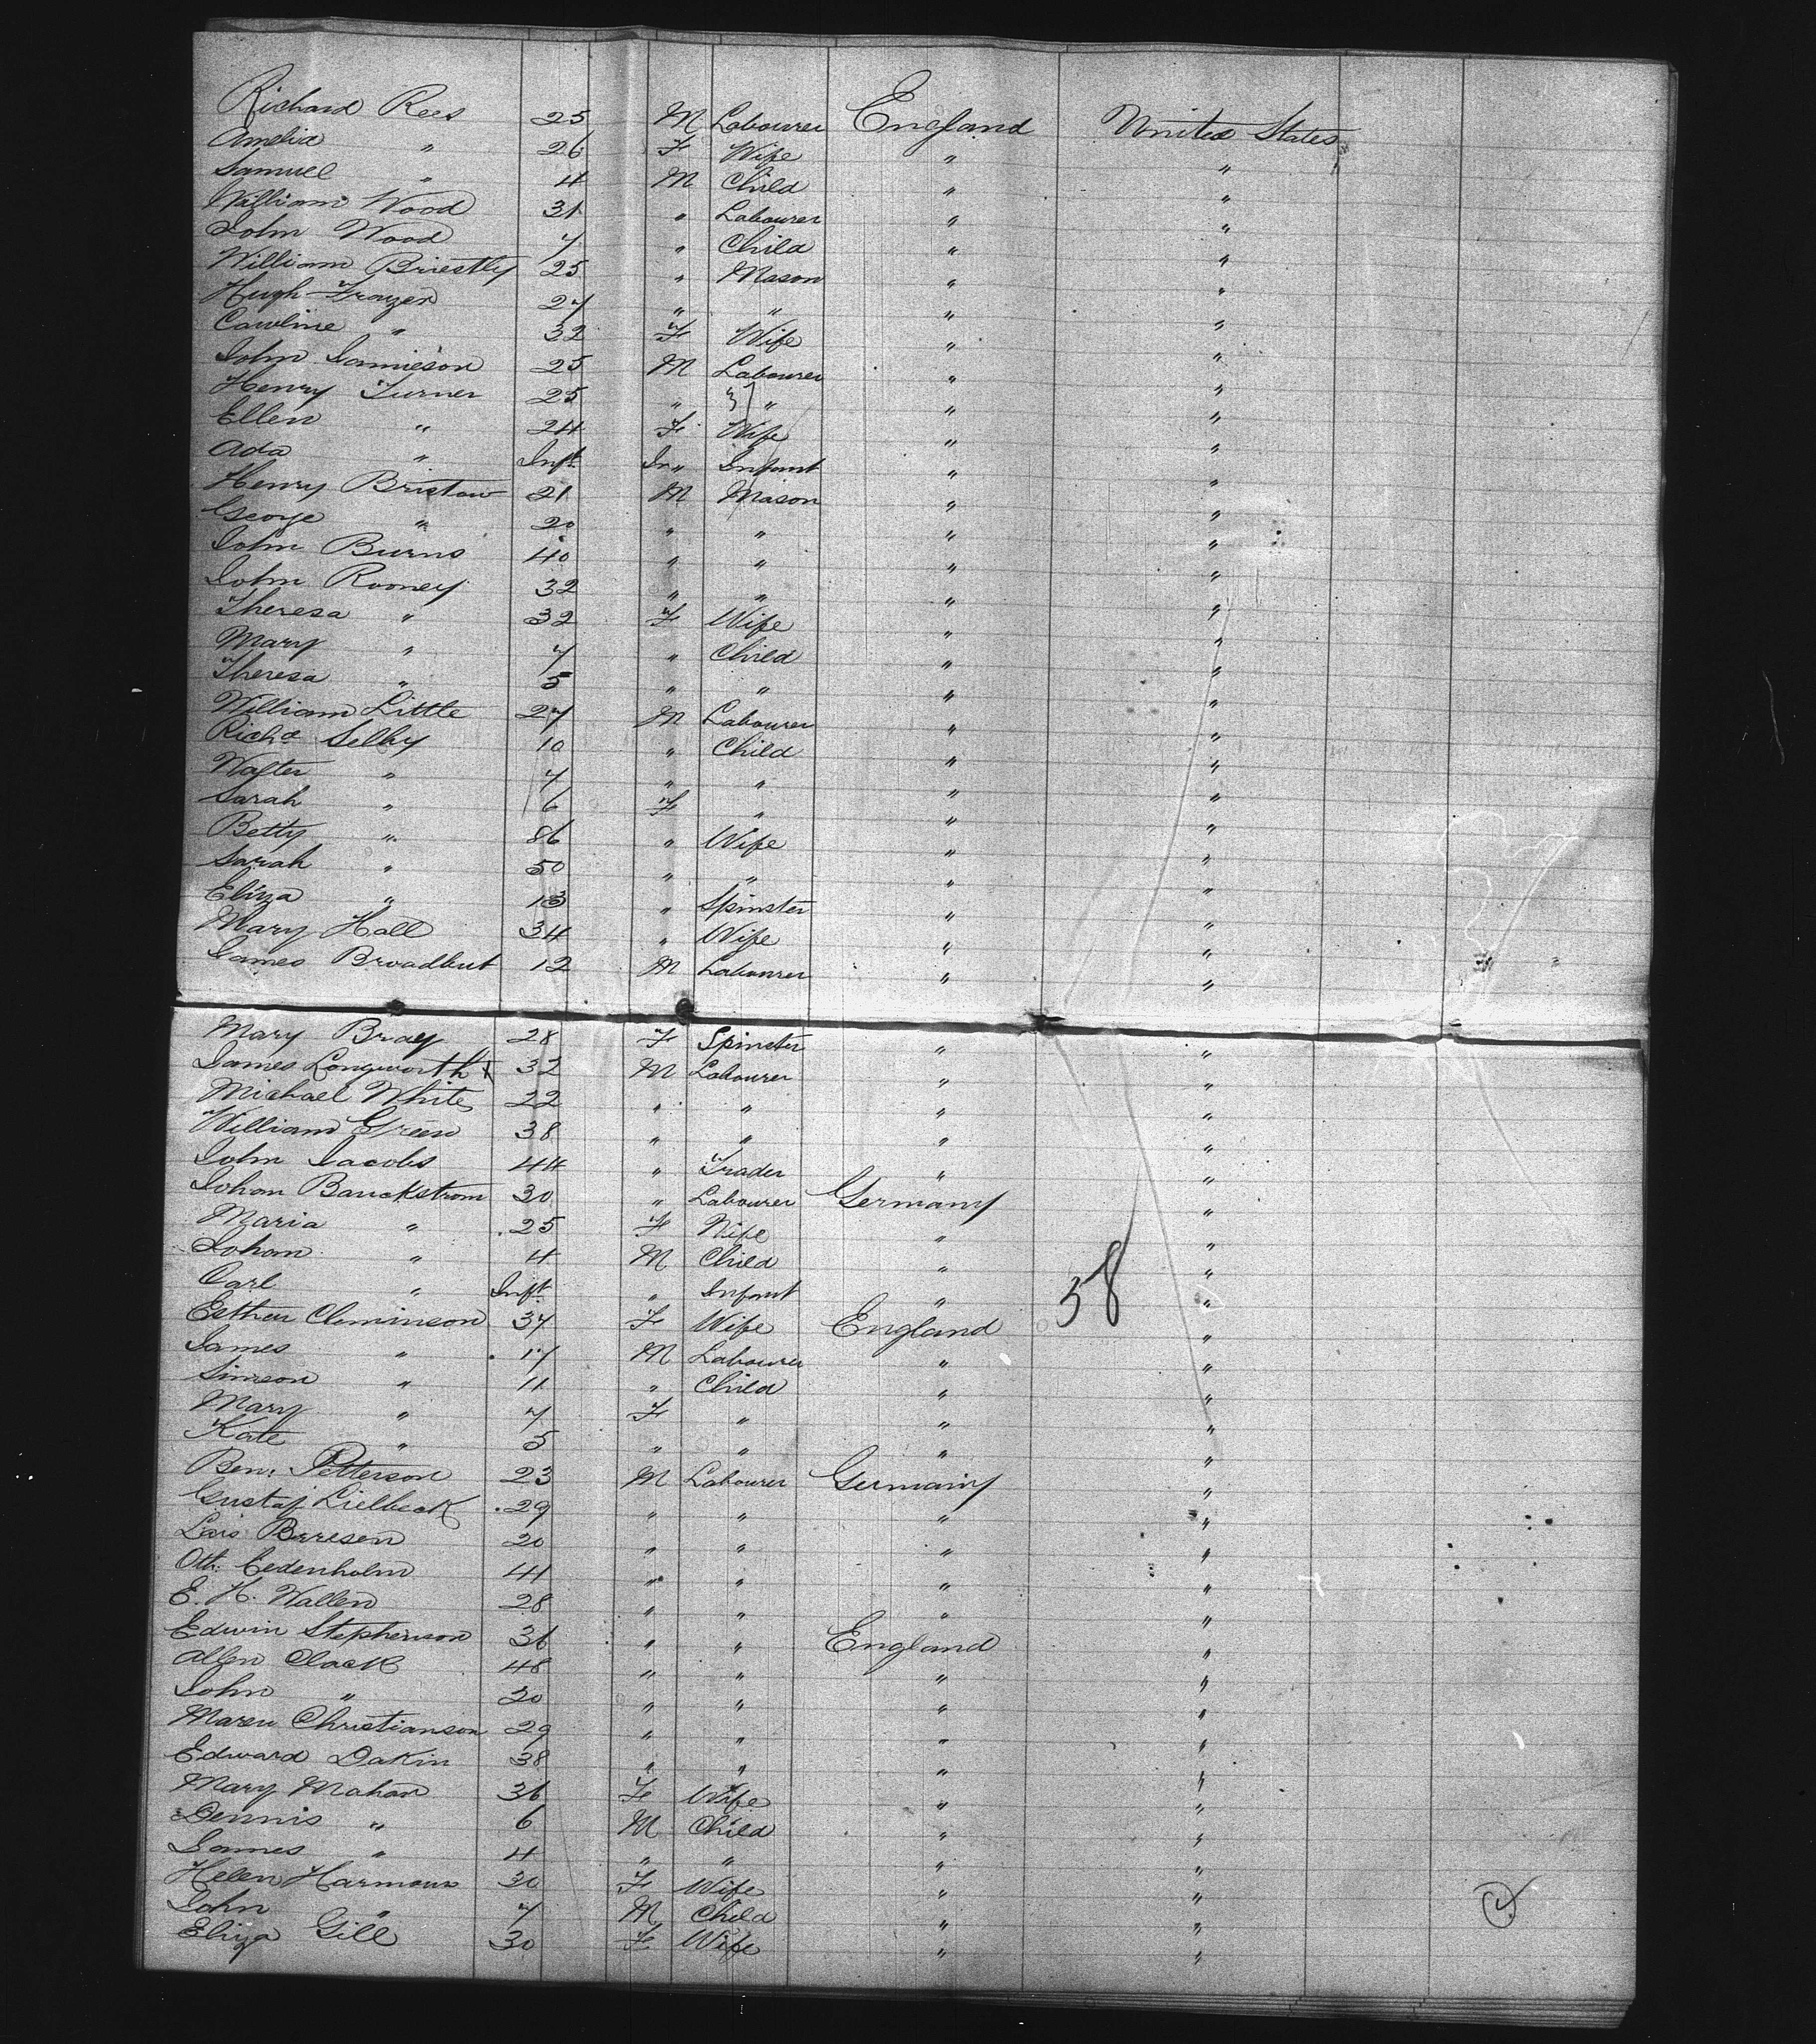 Richard Rees 25 M Labourer England United States
Amelia " 26 F Wife " "
Samuel " 4 M Child " "
William Wood 31 " Labourer " "
John Wood 7 " Child " "
William Briestly 25 " Mason " "
Hugh Frazer 27 " " " "
Caroline " 32 F Wife " "
John Jamieson 25 M Labourer " "
Henry Turner 25 " " " "
Ellen " 24 F Wife " "
Ada " Inft In " Infant " "
Henry Bristow 21 M Mason " "
George " 20 " " " "
John Burns 40 " " " "
John Rooney 32 " " " "
Theresa " 32 F Wife " "
Mary " 7 " Child " "
Theresa " 5 " " " "
William Little 27 M Labourer " "
Richd Selby 10 " Child " "
Walter " 7 " " " "
Sarah " 6 F " " "
Betty " 86 " Wife " "
Sarah " 50 " " " "
Eliza " 13 " Spinster " "
Mary Hall 34 " Wife " "
James Broadbut 12 M Labourer " "
Mary Bray 28 F Spinster " "
James Longworth 32 M Labourer " "
Michael White 22 " " " "
William Green 38 " " " "
John Jacobs 44 " Trader " "
Johan Bauckstrom 30 " Labourer Germany "
Maria " 25 F Wife " "
Johan " 4 M Child " "
Carl " Inft " Infant " 58 "
Esther Cleminson 37 F Wife England "
James " 17 M Labourer " "
Simeon " 11 " Child " "
Mary " 7 F " " "
Kate " 5 " " " "
Ben: Petterson 23 M Labourer Germany "
Gustaf Lielbeck 29 " " " "
Lars Berresen 20 " " " "
Oth: Cedenholm 41 " " " "
E. H. Wallen 28 " " " "
Edwin Stephenson 36 " " England "
Allen Clack 48 " " " "
John " 20 " " " "
Maren Christianson 29 " " " "
Edward Dakin 38 " " " "
Mary Mahan 36 F Wife " "
Dennis " 6 M Child " "
James " 4 " " " "
Helen Harmour 30 F Wife " "
John " 7 M Child " "
Eliza Gill 30 F Wife " "